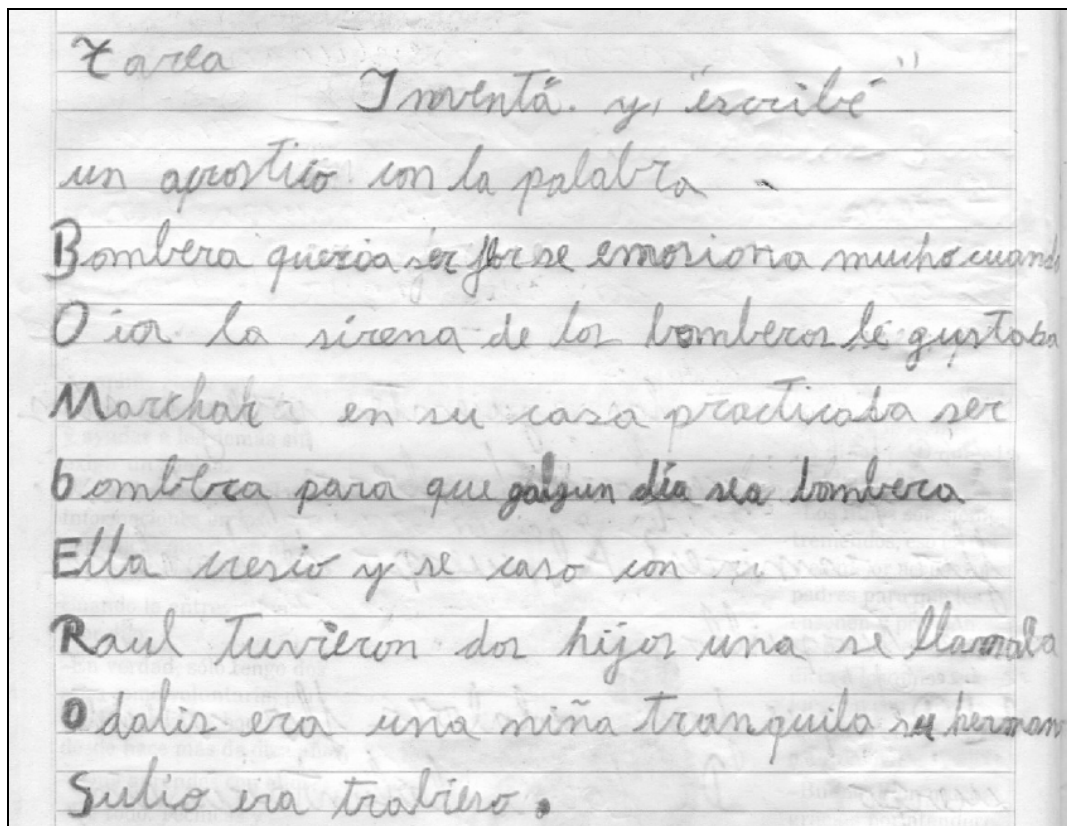 Tarea
Inventá. y, "escribé"
un acrostico con la palabra
Bombera queria ser flor se emosiona mucho cuando
Oia la sirena de los bomberos le gustaba
Marchar en su casa practicaba ser
bombera para que algun día sea bombera
Ella cresio y se caso con
Raul tuvieron dos hijos una se llamaba
Odalis era una niña tranquila su herman
Sulio era trabieso.